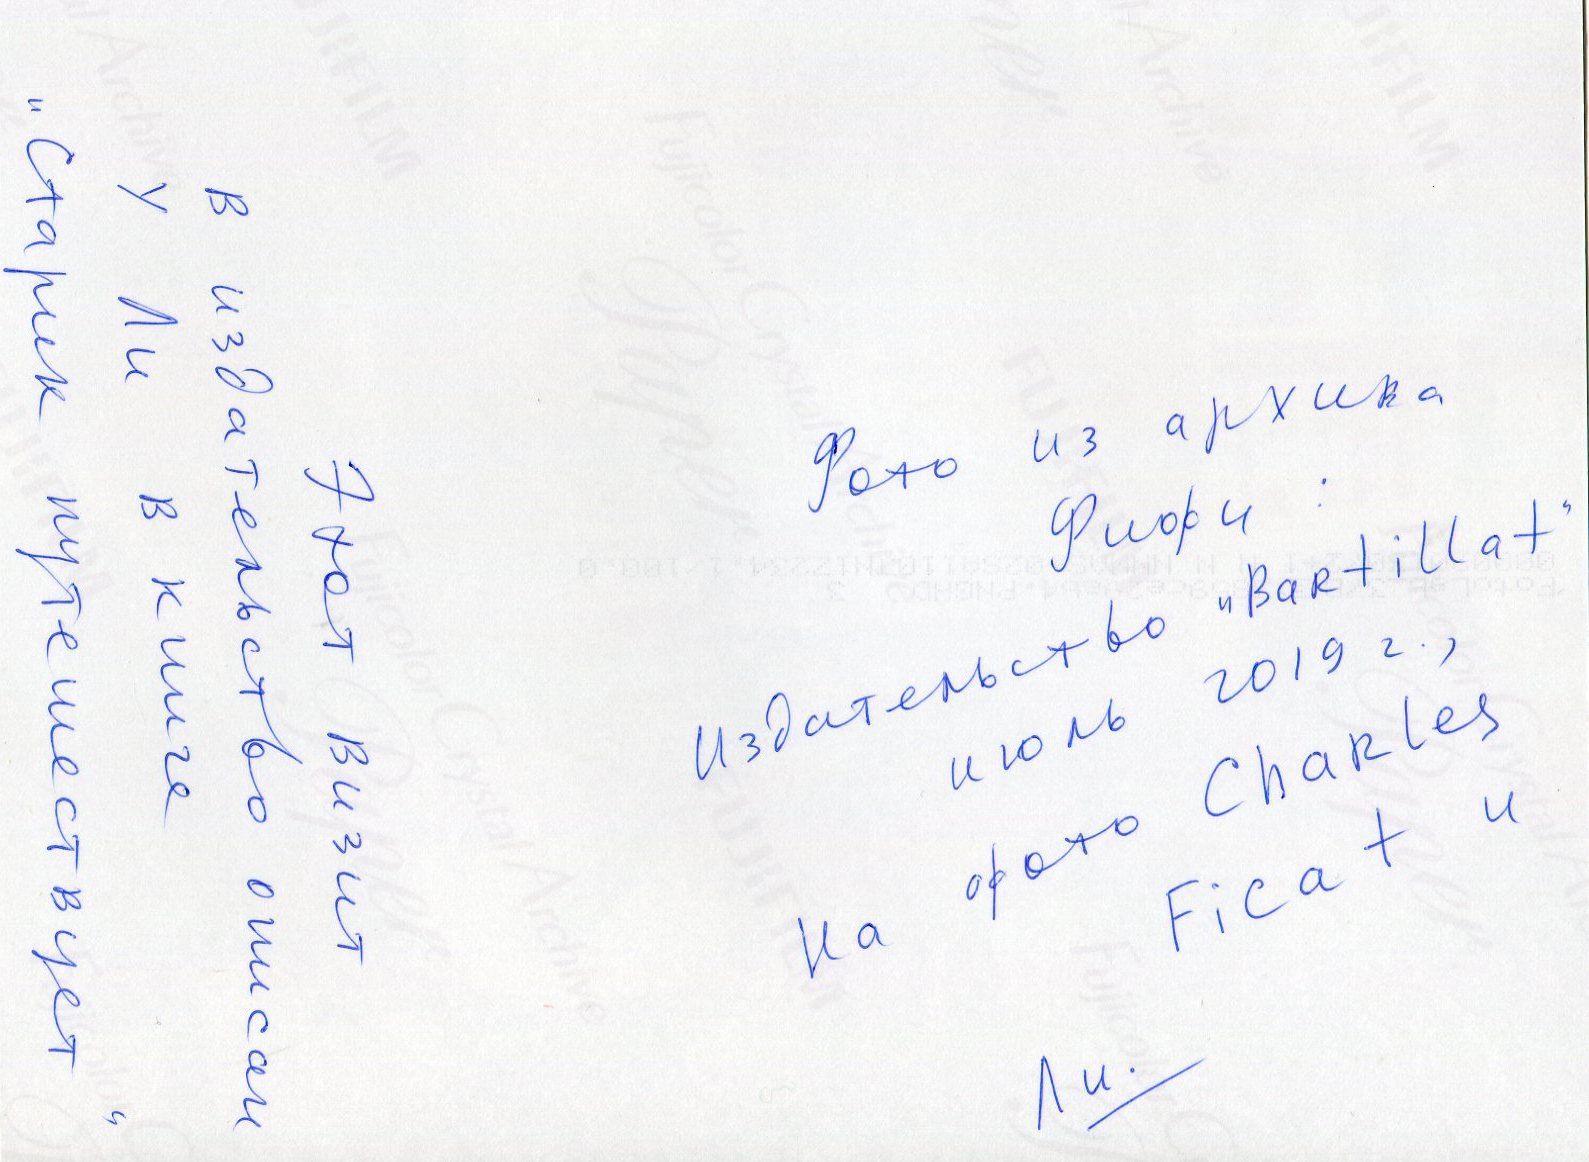 Фото из архива
Фифи:
Издательство "Bartillat"
июль 2019 г.,
на фото Charles
Ficat и
Ли.
Этот визит
в издательство описан
у Ли в книге
"Старик путешествует"